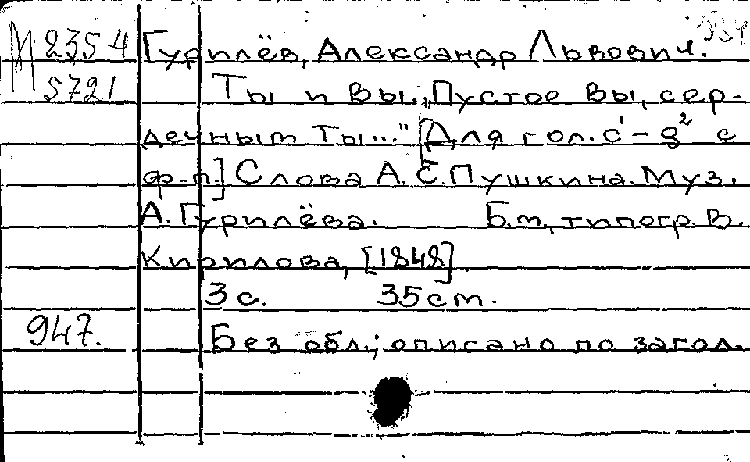 М 2354 Гурилёв, Александр Львович.
5721 Ты и Вы. „Пустое Вы, сер-
дечным Ты..." [Для гол. c¹ - g² с
ф-п.] Слова А. С. Пушкина. Муз.
А. Гурилёва. Б.м., типогр. В.
Кирилова, [1848]
3 с. 35 см.
947. Без обл.; описано по загол.